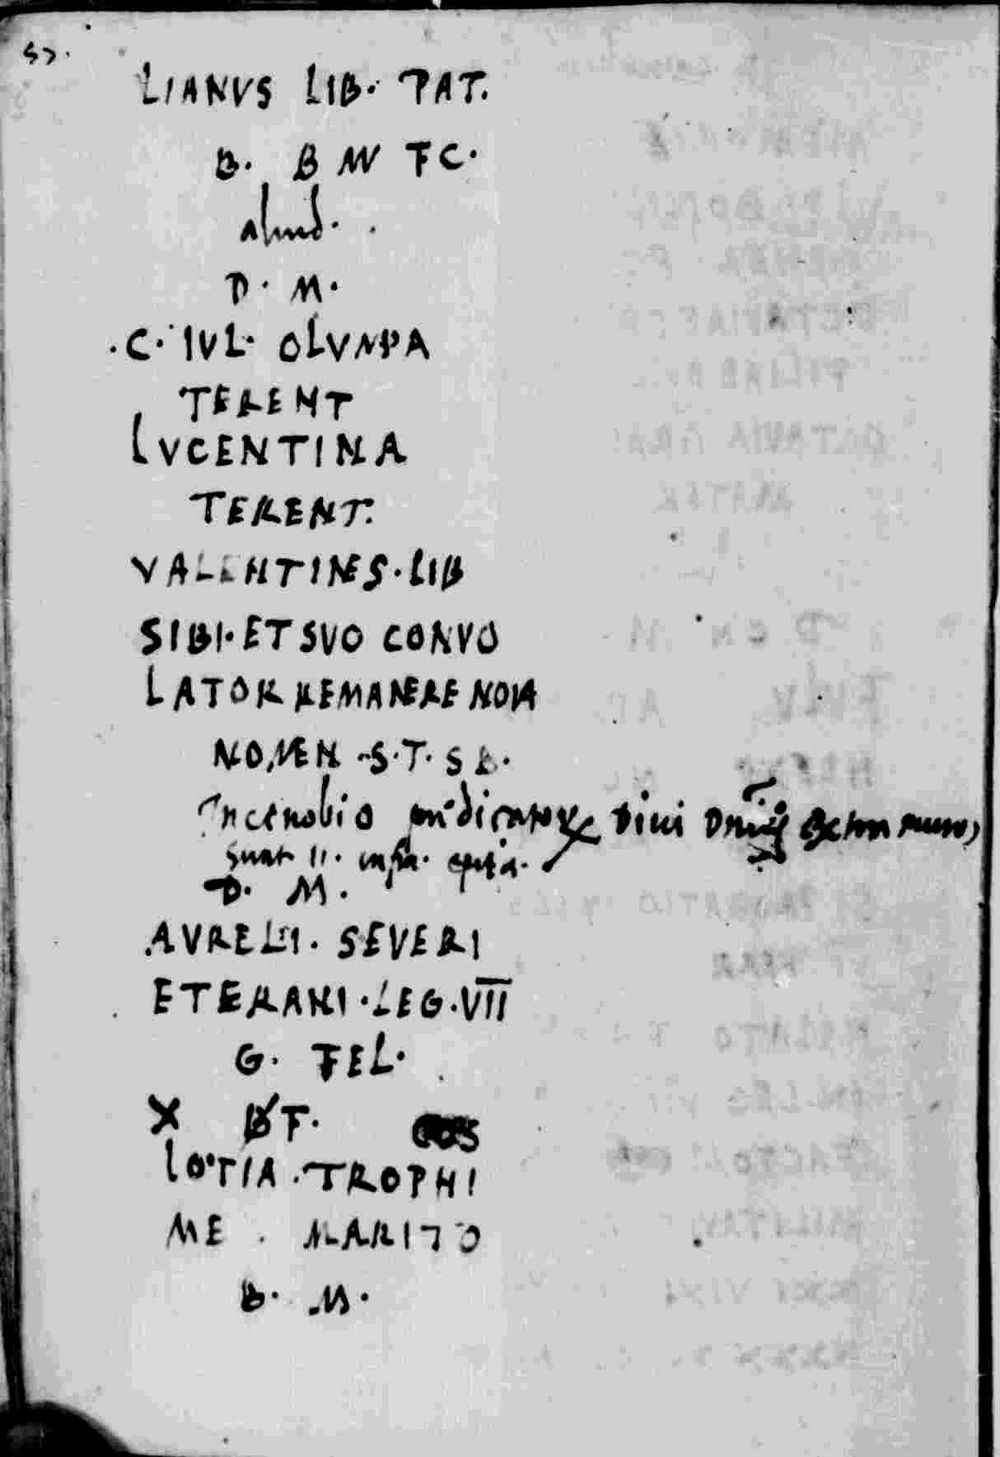 57.
LIANVS LIB. PAT.
B. B M FC.
aliud.
D. M.
.C. IVL. OLVMPA
TERENT
LVCENTINA
TERENT.
VALENTINES.LIB
SIBI.ET SVO CONVO
LATOR REMANERE NOM
NOMEN .S.T.S B.
In cenobio Divi
sunt II. infra.
D. M.
AVRELII. SEVERI
ETERANI.LEG.VII
G. FEL.
X B F.
LOTIA.TROPHI
ME . MARITO
B. M.